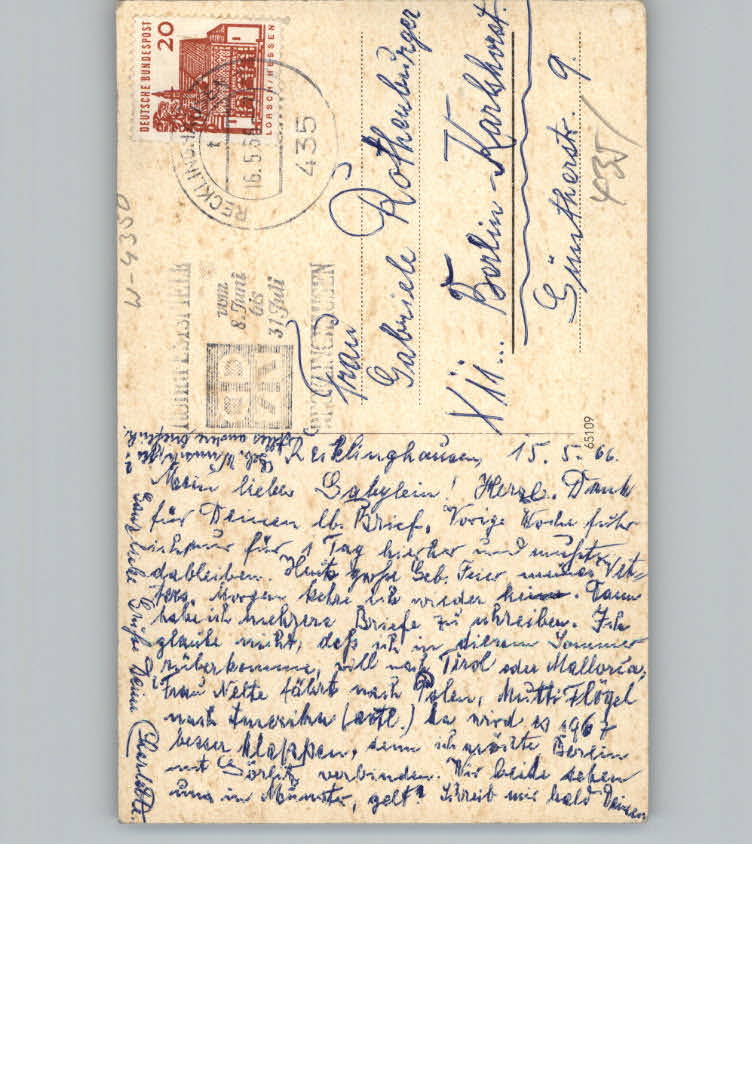 DEUTSCHE BUNDESPOST
20
LORSCH/HESSEN
RECKLINGHAUSEN
16.5.66
435
vom
8. Juni
bis
31. Juli
RECKLINGHAUSEN
W-4350
Frau
Gabriele Rothenburger
XII... Berlin-Karlshorst.
Güntherstr. 9.
435/
65109
Recklinghausen, 15. 5. 66.
Mein liebes Gabylein! Herzl. Dank
für Deinen lb. Brief. Vorige Woche fuhr
ich nur für 1 Tag hierher und mußte
dableiben. Heute große Geb. Feier meines Vet-
ters. Morgen kehre ich wieder heim. Dann
habe ich mehrere Briefe zu schreiben. Ich
glaube nicht, daß ich in diesem Sommer
rüberkomme, will nach Tirol oder Mallorca,
Frau Nelte fährt nach Polen, Mutti Flögel
nach Amerika (evtl.) da wird es 1967
besser klappen, denn ich möchte Berlin
mit Görlitz verbinden. Wir beide sehen
uns in Münster, gelt? Schreib mir bald Deinen
Geb. Wunsch
Alles andere brieflich.
Ganz liebe Grüße Deine Charlotte.